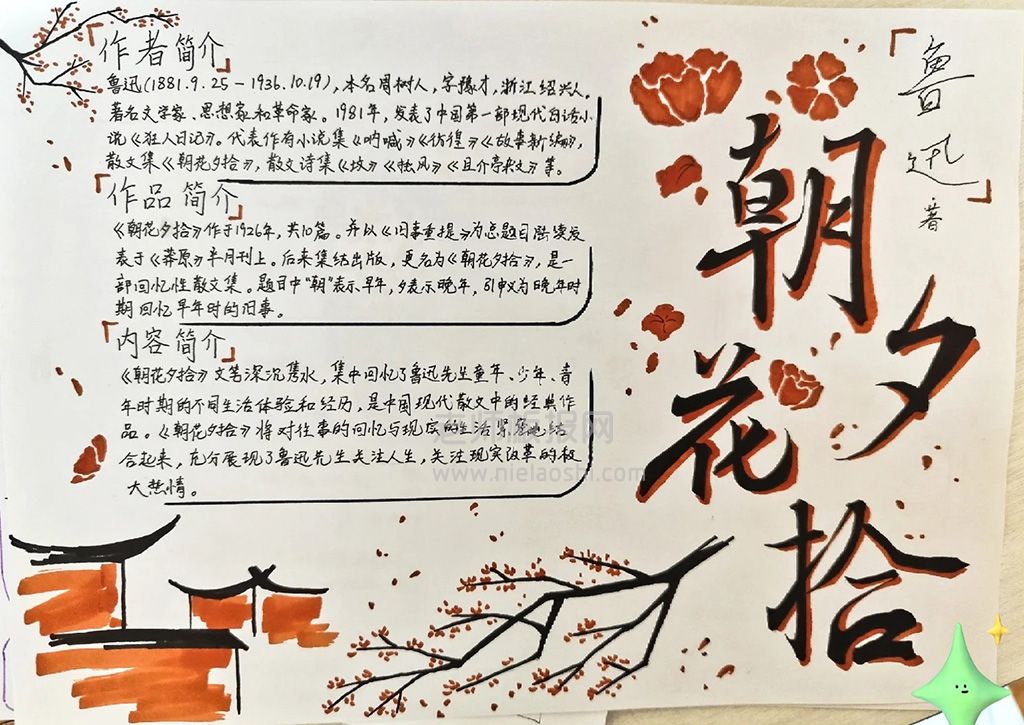 鲁迅
著
朝花夕拾
作者简介
鲁迅(1881.9.25-1936.10.19),本名周树人,字豫才,浙江绍兴人。
著名文学家、思想家和革命家。1981年,发表了中国第一部现代白话小
说《狂人日记》。代表作有小说集《呐喊》《彷徨》《故事新编》,
散文集《朝花夕拾》,散文诗集《坟》《风》《且介亭杂文》等。
作品简介
《朝花夕拾》作于1926年,共10篇。并以《旧事重提》为总题目陆续发
表于《莽原》半月刊上。后来集结出版,更名为《朝花夕拾》,是一
部回忆性散文集。题目中"朝"表示早年,夕表示晚年,引申义为晚年时
期回忆早年时的旧事。
内容简介
《朝花夕拾》文笔深沉隽永,集中回忆了鲁迅先生童年、少年、青
年时期的不同生活体验和经历,是中国现代散文中的经典作
品。《朝花夕拾》将对往事的回忆与现实的生活紧密地结
合起来,充分展现了鲁迅先生关注人生,关注现实改革的极
大热情。
老师板报网
www.nielaoshi.com